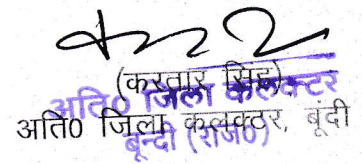 (करतार सिंह)
अति० जिला कलक्टर
अति० जिला कलक्टर, बूंदी
बून्दी (राज०)